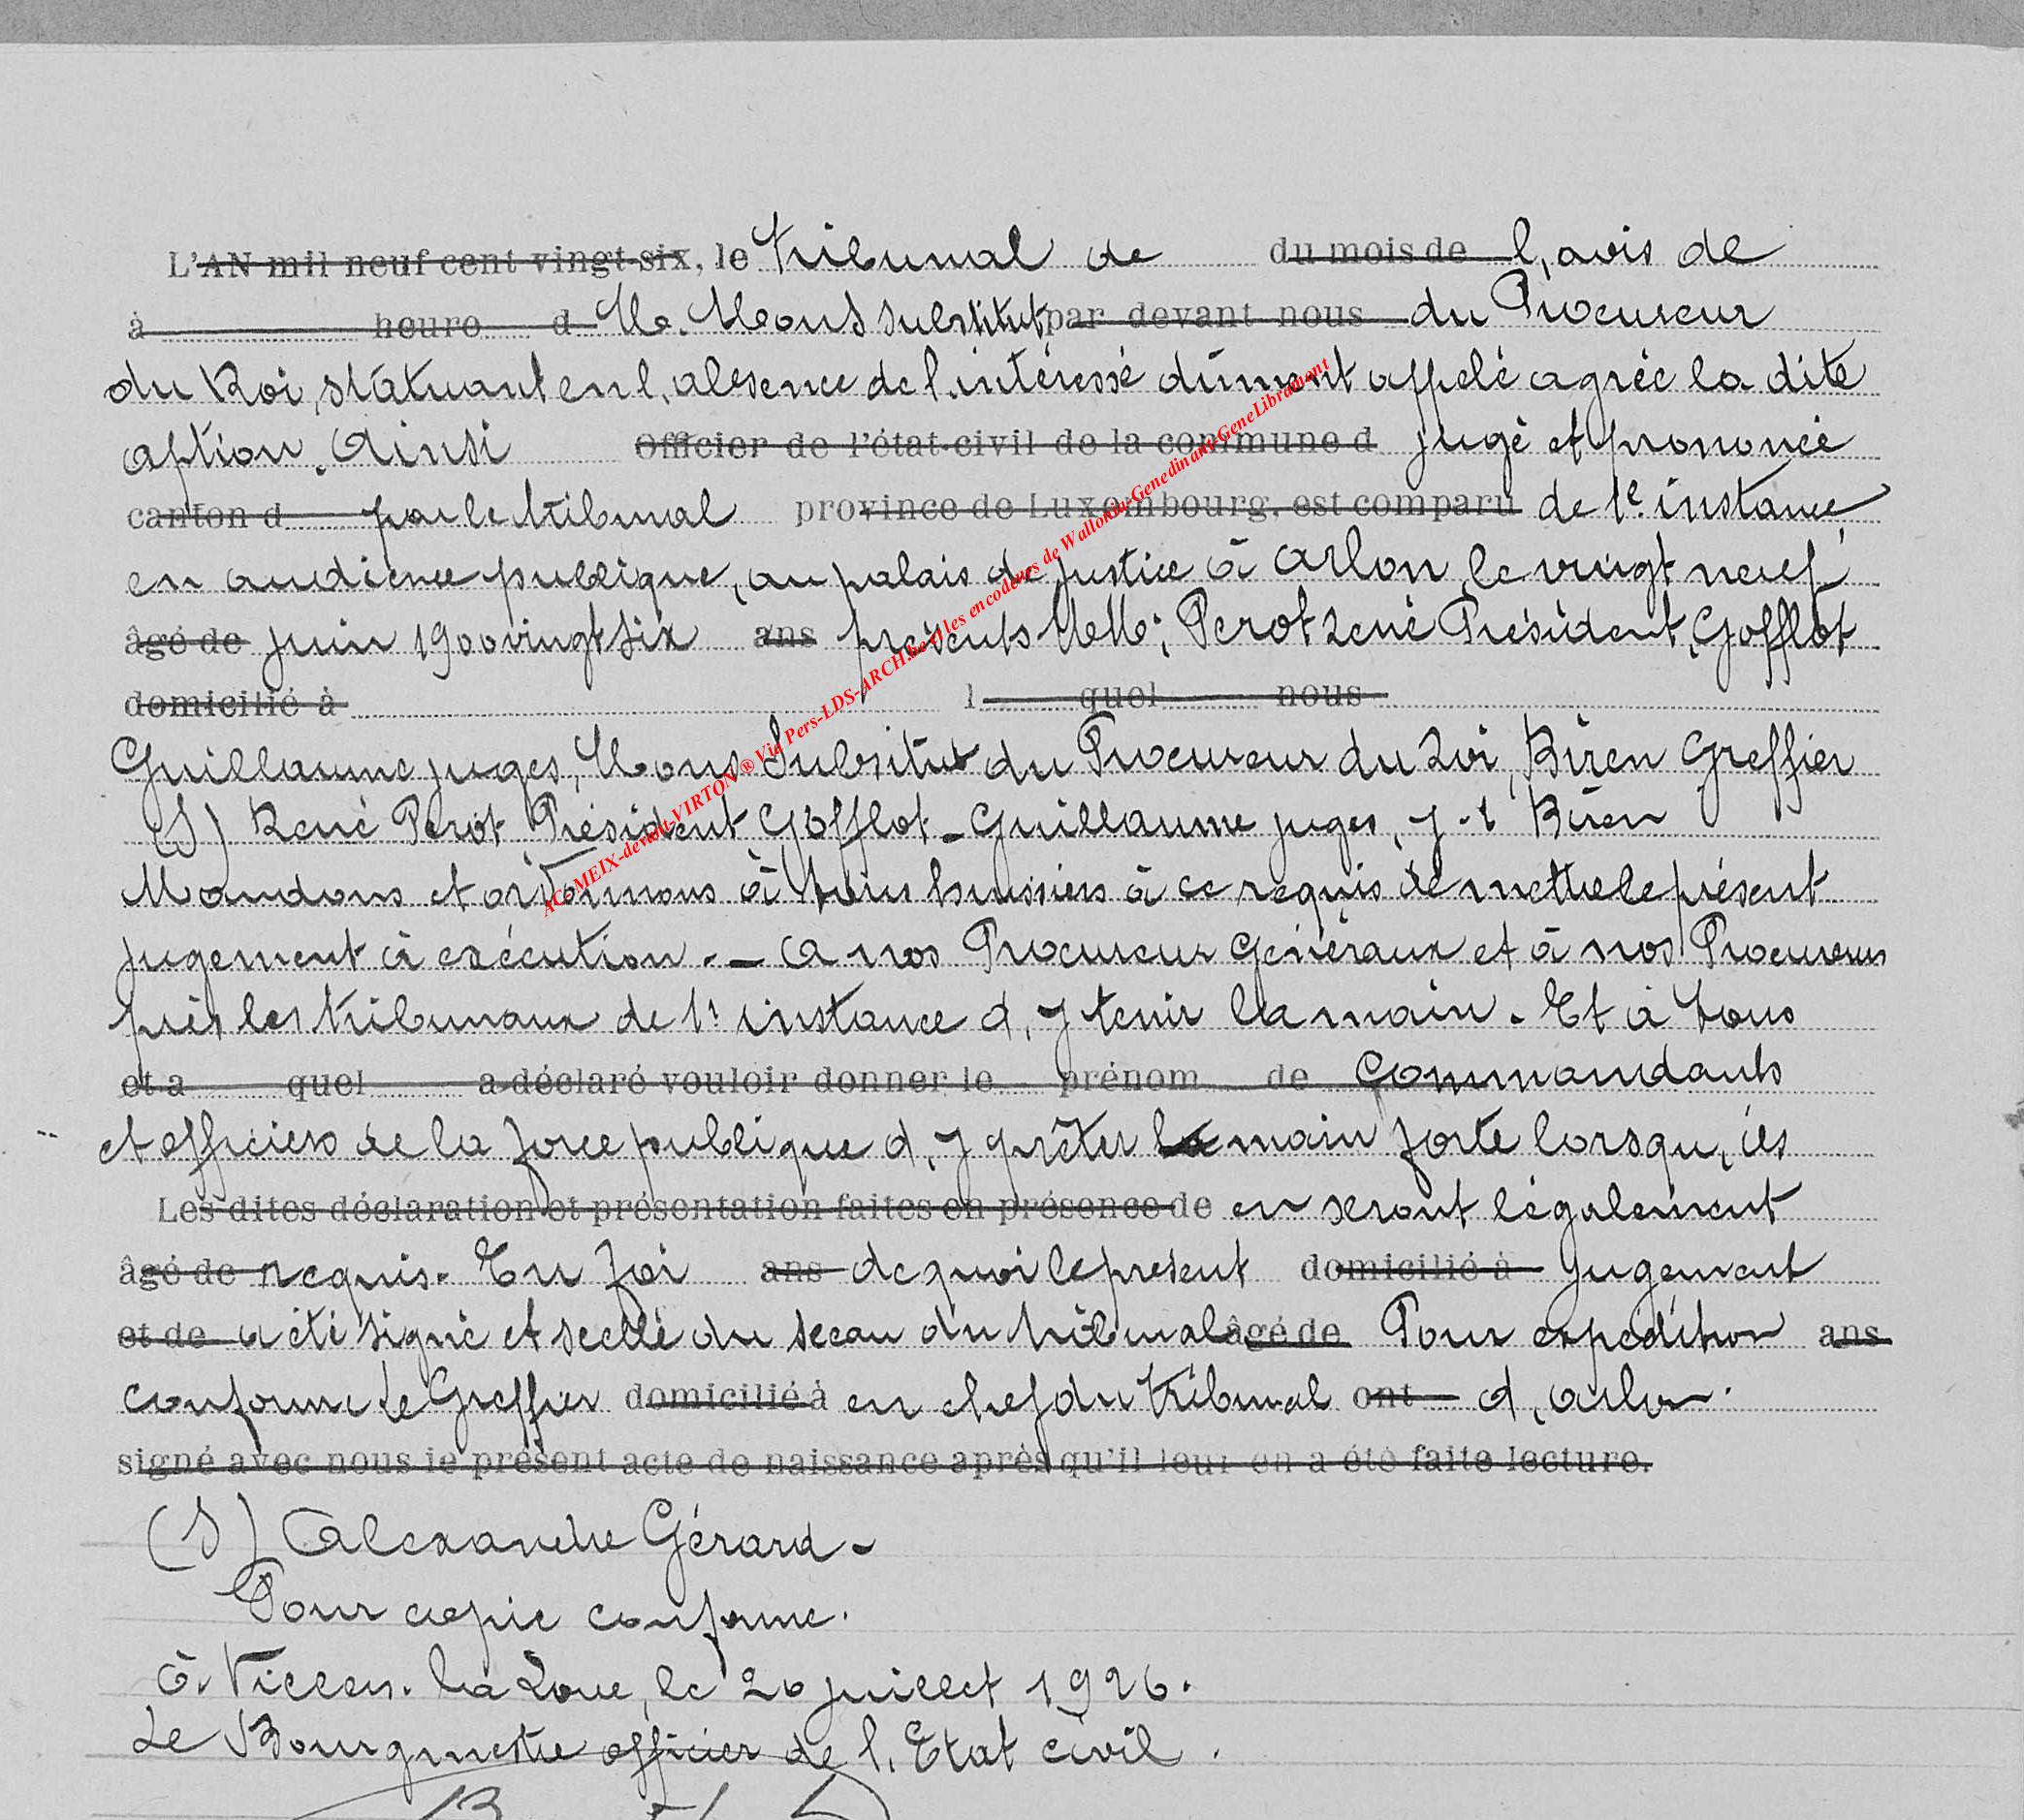 L'AN mil neuf cent vingt-six, le tribunal de du mois de l, avis de
à heure d M. Mons substitut par devant nous du Procureur
du Roi, statuant en l, absence de l'intéressé dûment appelé agrée la dite
option. Ainsi Officier de l'état-civil de la commune d jugé et prononcé
canton d par le tribunal province de Luxembourg, est comparu de 1e instance
en audience publique, au palais de justice à Arlon, le vingt neuf
âgé de juin 1900 vingt six ans présents MM: Perot René Président, Gofflot
domicilié à l quel nous
Guillaume juges, Mons Subsitut du Procureur du Roi, Biren Greffier
(S) René Perot, Président Gofflot - Guillaume juges, J. Biren
Mandons et ordonnons à tous huissiers à ce requis de mettre le présent
jugement à exécution. - A nos Procureur Généraux et à nos Procureurs
près les tribunaux de 1e instance d, y tenir la main. Et à tous
et a quel a déclaré vouloir donner le prénom de Commandants
et officiers de la force publique d, y prêter main forte lorsqu, ils
Les dites déclaration et présentation faites en présence de en seront légalement
âgé de requis. En foi ans de quoi le présent domicilié à jugement
et de a été signé et scellé du sceau du tribunal. âgé de Pour expédition ans
conforme Le Greffier domicilié à en chef du tribunal ont d, Arlon.
signé avec nous le présent acte de naissance après qu'il leur en a été faite lecture.
(S) Alexandre Gérard -
Pour copie conforme.
à Villers-la-Loue, le 20 juillet 1926.
Le Bourgmestre officier de l, Etat civil.
AC-MEIX-devant-VIRTON® Via Pers-LDS-ARCH.be et les encodeurs de Wallonia-Genedinant-GeneLibramont